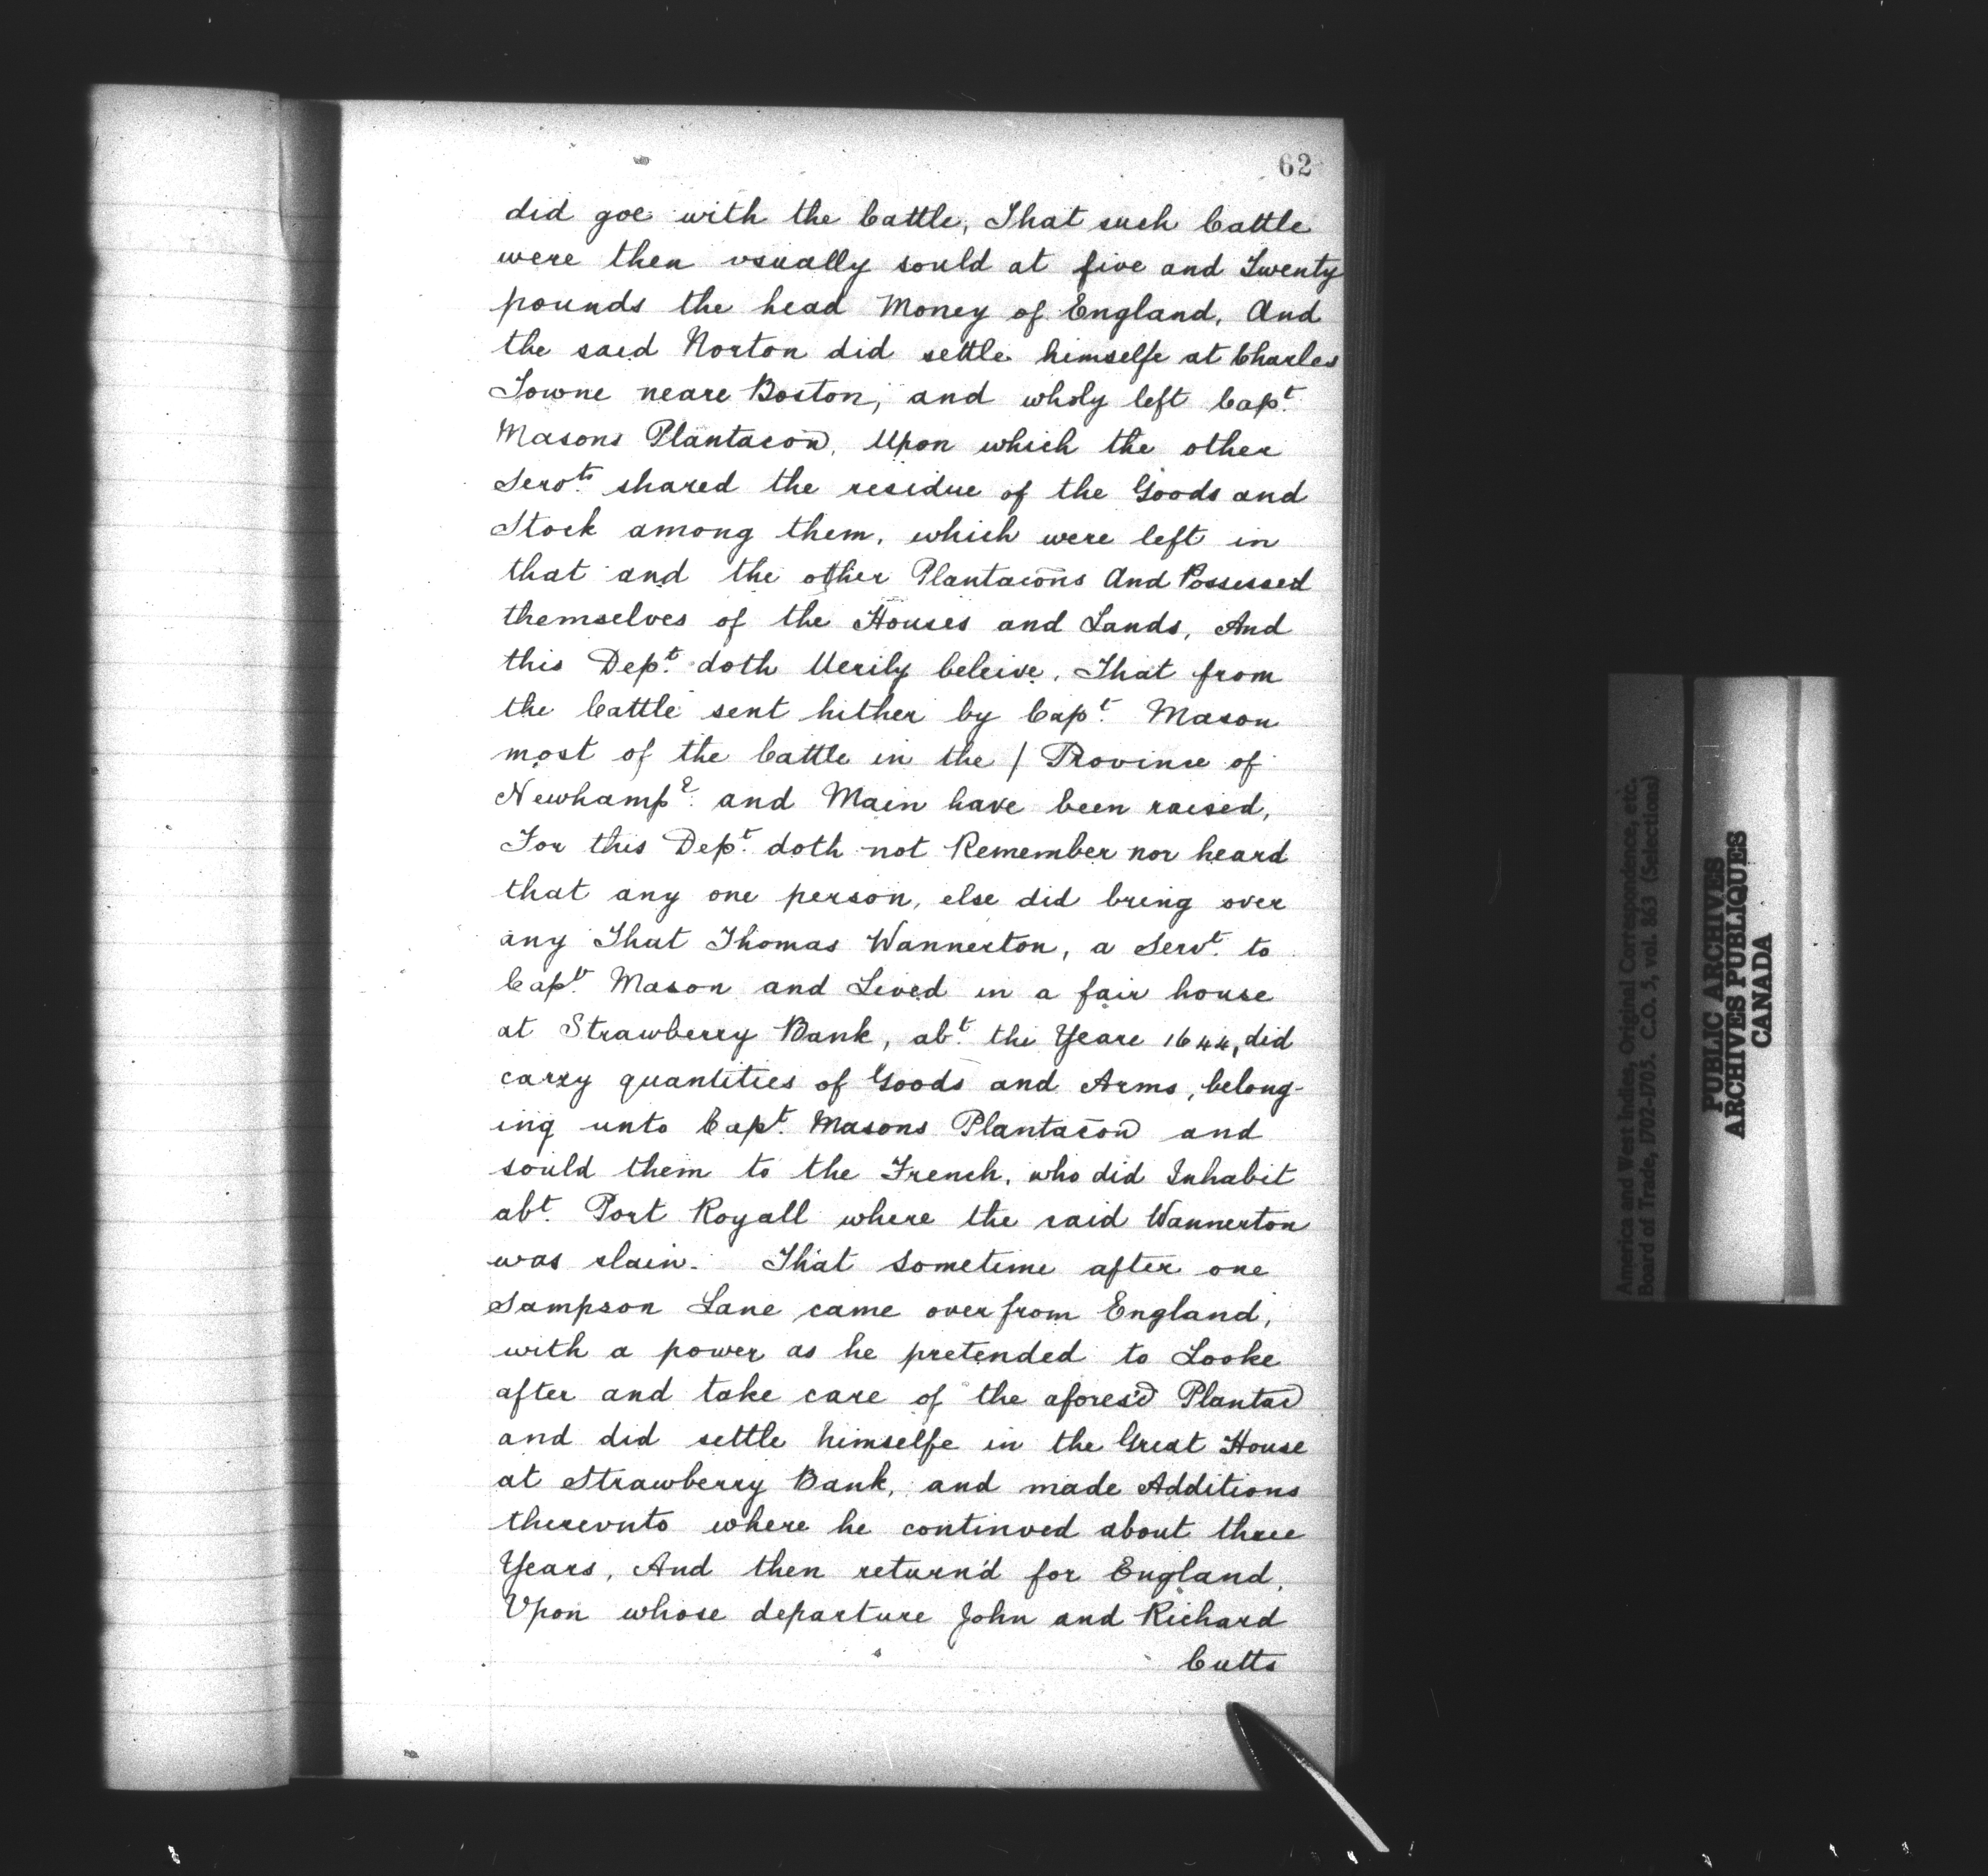 62
did goe with the Cattle, That such Cattle
were then vsually sould at five and Twenty
pounds the head Money of England, And
the said Norton did settle himselfe at Charles
Towne neare Boston, and wholy left Capt.
Masons Plantacon, Upon which the other
Servts. shared the residue of the Goods and
Stock among them, which were left in
that and the other Plantacons And Possessed
themselves of the Houses and Lands, And
this Dept. doth Verily beleive, That from
the Cattle sent hither by Capt. Mason
most of the Cattle in the / Province of
Newhampe. and Main have been raised,
For this Dept. doth not Remember nor heard
that any one person, else did bring over
any That Thomas Wannerton, a Servt. to
Capt. Mason and Lived in a fair house
at Strawberry Bank, abt. the Yeare 1644, did
carry quantities of Goods and Arms, belong-
ing unto Capt. Masons Plantacon and
sould them to the French, who did Inhabit
abt. Port Royall where the said Wannerton
was slain. That sometime after one
Sampson Lane came over from England,
with a power as he pretended to Looke
after and take care of the afores'd Plantac
and did settle himselfe in the Great House
at Strawberry Bank, and made Additions
therevnto where he continved about three
Years, And then return'd for England.
Vpon whose departure John and Richard
Cutts
America and West Indies, Original Correspondence, etc.
Board of Trade, 1702-1705. C.O. 5, vol. 863 (Selections)
PUBLIC ARCHIVES
ARCHIVES PUBLIQUES
CANADA